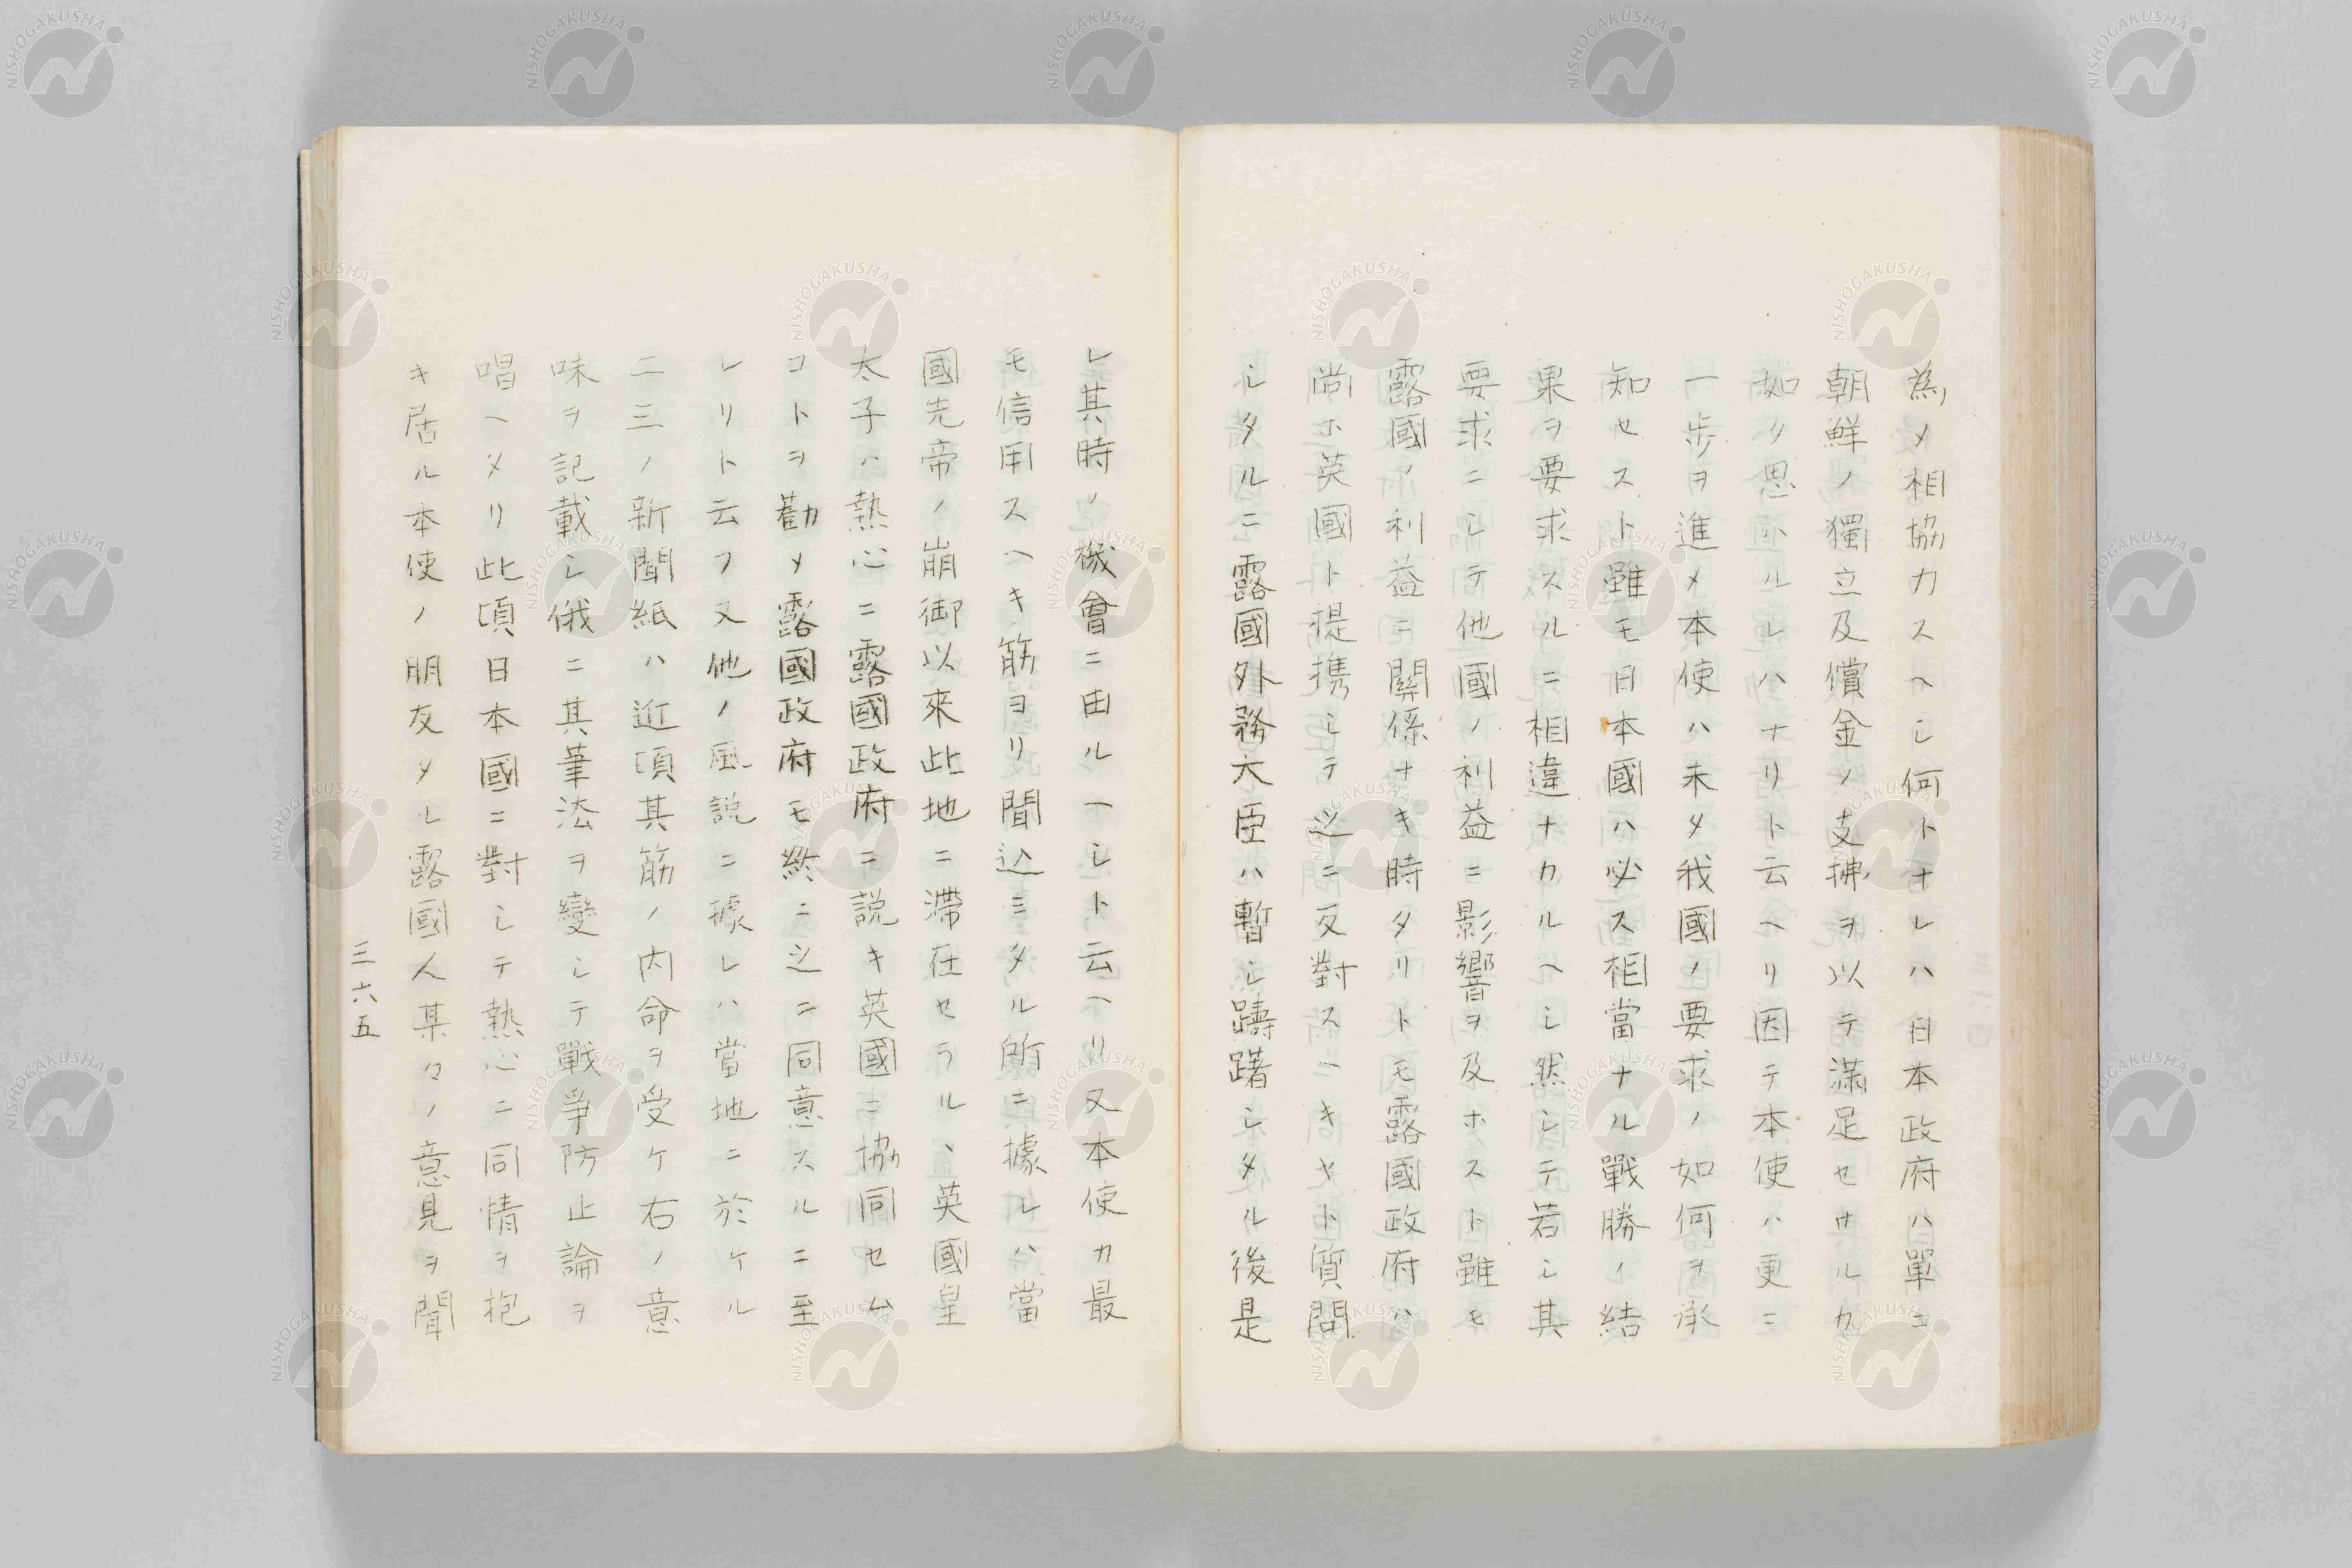 為メ相協力スヘシ何トナレハ日本政府ハ單ニ
朝鮮ノ獨立及償金ノ支拂ヲ以テ滿足セサルカ
如ク思ハルレハナリト云ヘリ因テ本使ハ更ニ
一歩ヲ進メ本使ハ未タ我國ノ要求ノ如何ヲ承
知セスト雖モ日本國ハ必ス相當ナル戰勝ノ結
果ヲ要求スルニ相違ナカルヘシ然シテ若シ其
要求ニシテ他國ノ利益ニ影響ヲ及ホスト雖モ
露國ノ利益ニ關係ナキ時タリトモ露國政府ハ
尚ホ英國ト提携シテ之ニ反對スヘキヤト質問
シタルニ露國外務大臣ハ暫シ躊躇シタル後是
レ其時ノ機會ニ由ルヘシト云ヘリ又本使カ最
モ信用スヘキ筋ヨリ聞込ミタル所ニ據レハ當
國先帝ノ崩御以來此地ニ滯在セラルヽ英國皇
太子ハ熱心ニ露國政府ニ説キ英國ニ協同セム
コトヲ勸メ露國政府モ終ニ之ニ同意スルニ至
レリト云フ又他ノ風説ニ據レハ當地ニ於ケル
二三ノ新聞紙ハ近頃其筋ノ内命ヲ受ケ右ノ意
味ヲ記載シ俄ニ其筆法ヲ變シテ戰爭防止論ヲ
唱ヘメリ此頃日本國ニ對シテ熱心ニ同情ヲ抱
キ居ル本使ノ朋友タル露國人某々ノ意見ヲ聞
三六五
NISHOGAKUSHA